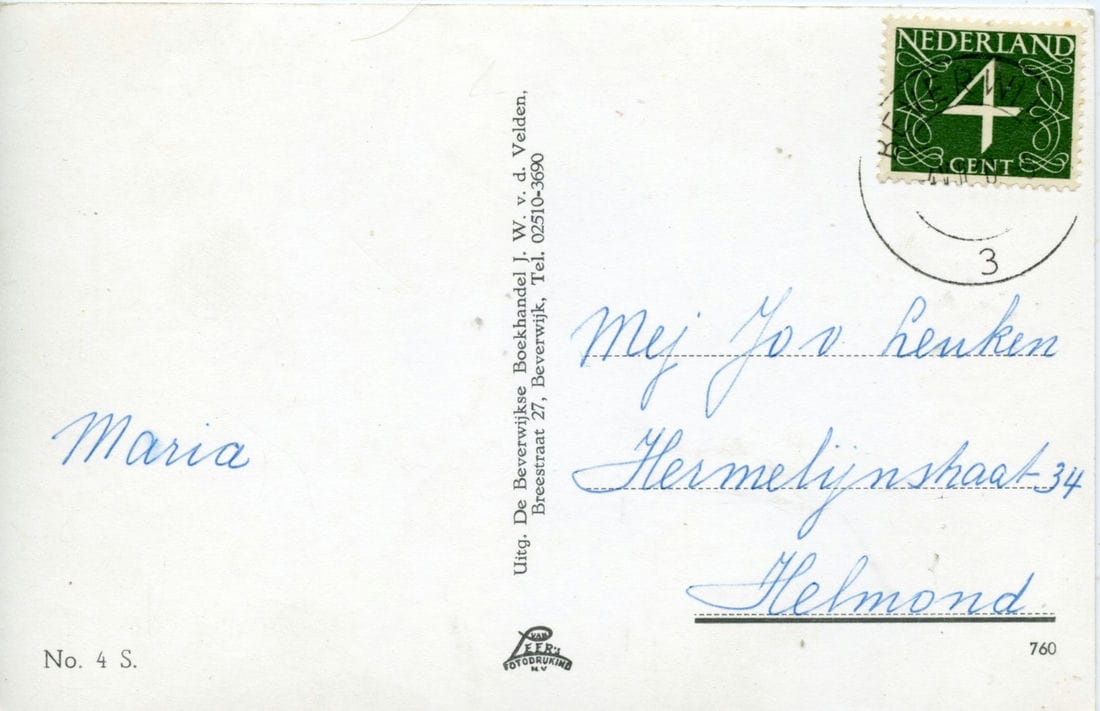 NEDERLAND
4
CENT
BEVERWIJK
3
Uitg. De Beverwijkse Boekhandel J. W. v. d. Velden,
Breestraat 27, Beverwijk, Tel. 02510-3690
Mej Jo v Leuken
Hermelijnstraat 34
Helmond
Maria
No. 4 S.
VAN
LEER's
FOTODRUKIND
N.V
760